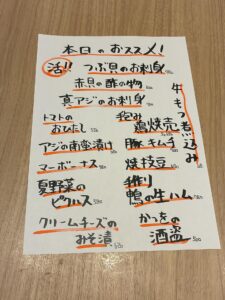 本日のおススメ!
活!! つぶ貝のお刺身
赤貝の酢の物
真アジのお刺身
トマトの
おひたし
アジの南蛮漬け
マーボーナス
夏野菜の
ピクルス
クリームチーズの
みそ漬
牛もつ煮込み
鶏焼売
豚キムチ
焼枝豆
鴨の生ハム
かつをの
酒盗